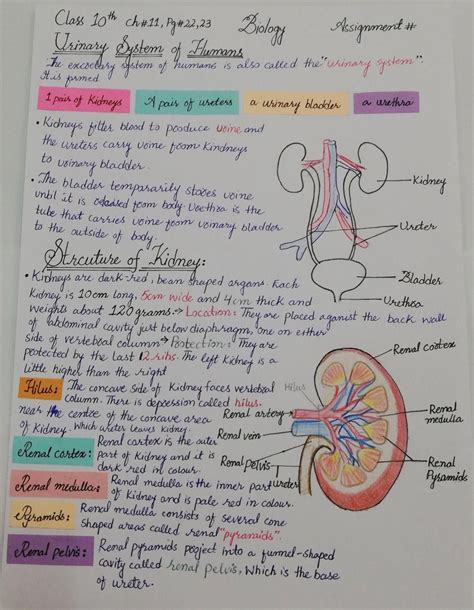 Class 10th Ch#11, Pg#22,23 Biology Assignment #
Urinary System of Humans
The excretory system of humans is also called the "urinary system".
It is formed
1 pairs of Kidneys
A pair of ureters
a urinary bladder
a urethra
• Kidneys filter blood to produce urine and
the ureters carry urine from kindneys
to urinary bladder.
• The bladder tempararily stores urine
until it is released from body. Urethra is the
tube that carries urine from urinary bladder
to the outside of body.
Kidney
Ureter
Bladder
Urethra
Strcuture of Kidney:
• Kidneys are dark-red, bean shaped organs. Each
Kidney is 10cm long, 5cm wide and 4cm thick and
weights about 120grams.→ Location: They are placed against the back wall
of abdominal cavity just below diaphragm, one on either
side of vertebral column→ Protection: They are
protected by the last 2 ribs. The left Kidney is a
little higher than the right
Hilus: The concave side of Kidney faces vertebral
column. There is depession called hilus.
near the centre of the concave area
of Kidney. Which ureter leaves Kidney.
Renal cortex: Renal cortex is the outer
part of Kidney and it is
dark red in colour.
Renal medulla: Renal medulla is the inner part
of Kidney and is pale red in colour.
Pyramids: Renal medulla consists of several cone
shaped areas called renal "pyramids".
Renal pelvis: Renal pyramids project into a funnel-shaped
cavity called renal pelvis, Which is the base
of ureter.
Renal cortex
Hilus
Renal artery
Renal vein
Renal pelvis
ureter
Renal
medulla
Renal
Pyramids